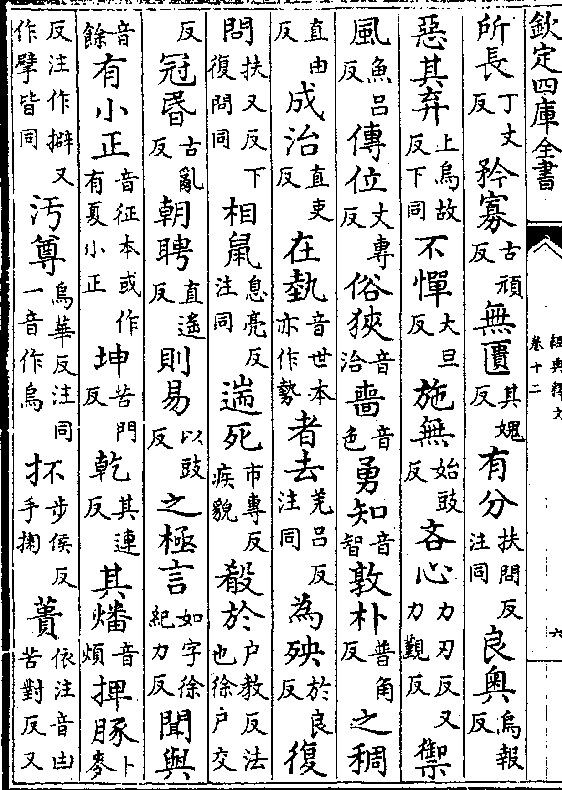 欽定四庫全書
經典釋文
卷十二
六
所長丁丈反矜寡古頑反無匱其媿反有分扶問反注同良奧烏報反
惡其弃上烏故反下同不憚大旦反施無始豉反吝心力刃反又力觀反禦
風魚呂反傳位丈專反俗狹音洽嗇音色勇知音智敦朴普角反之稠
直由反成治直吏反在埶音世本亦作勢者去羌呂反注同為殃於良反復
問扶又反下復問同相鼠息亮反注同遄死市專反疾貌殽於户教反法也徐户交
反冠昏古亂反朝聘直遥反則易以豉反之極言如字徐紀力反聞與
音餘有小正音征本或作有夏小正坤苦門反乾其連反其燔音煩捭豚卜麥
反注作擗又作擘皆同汚尊烏華反注同一音作烏抔步侯反手掬蕢依注音凷苦對反又